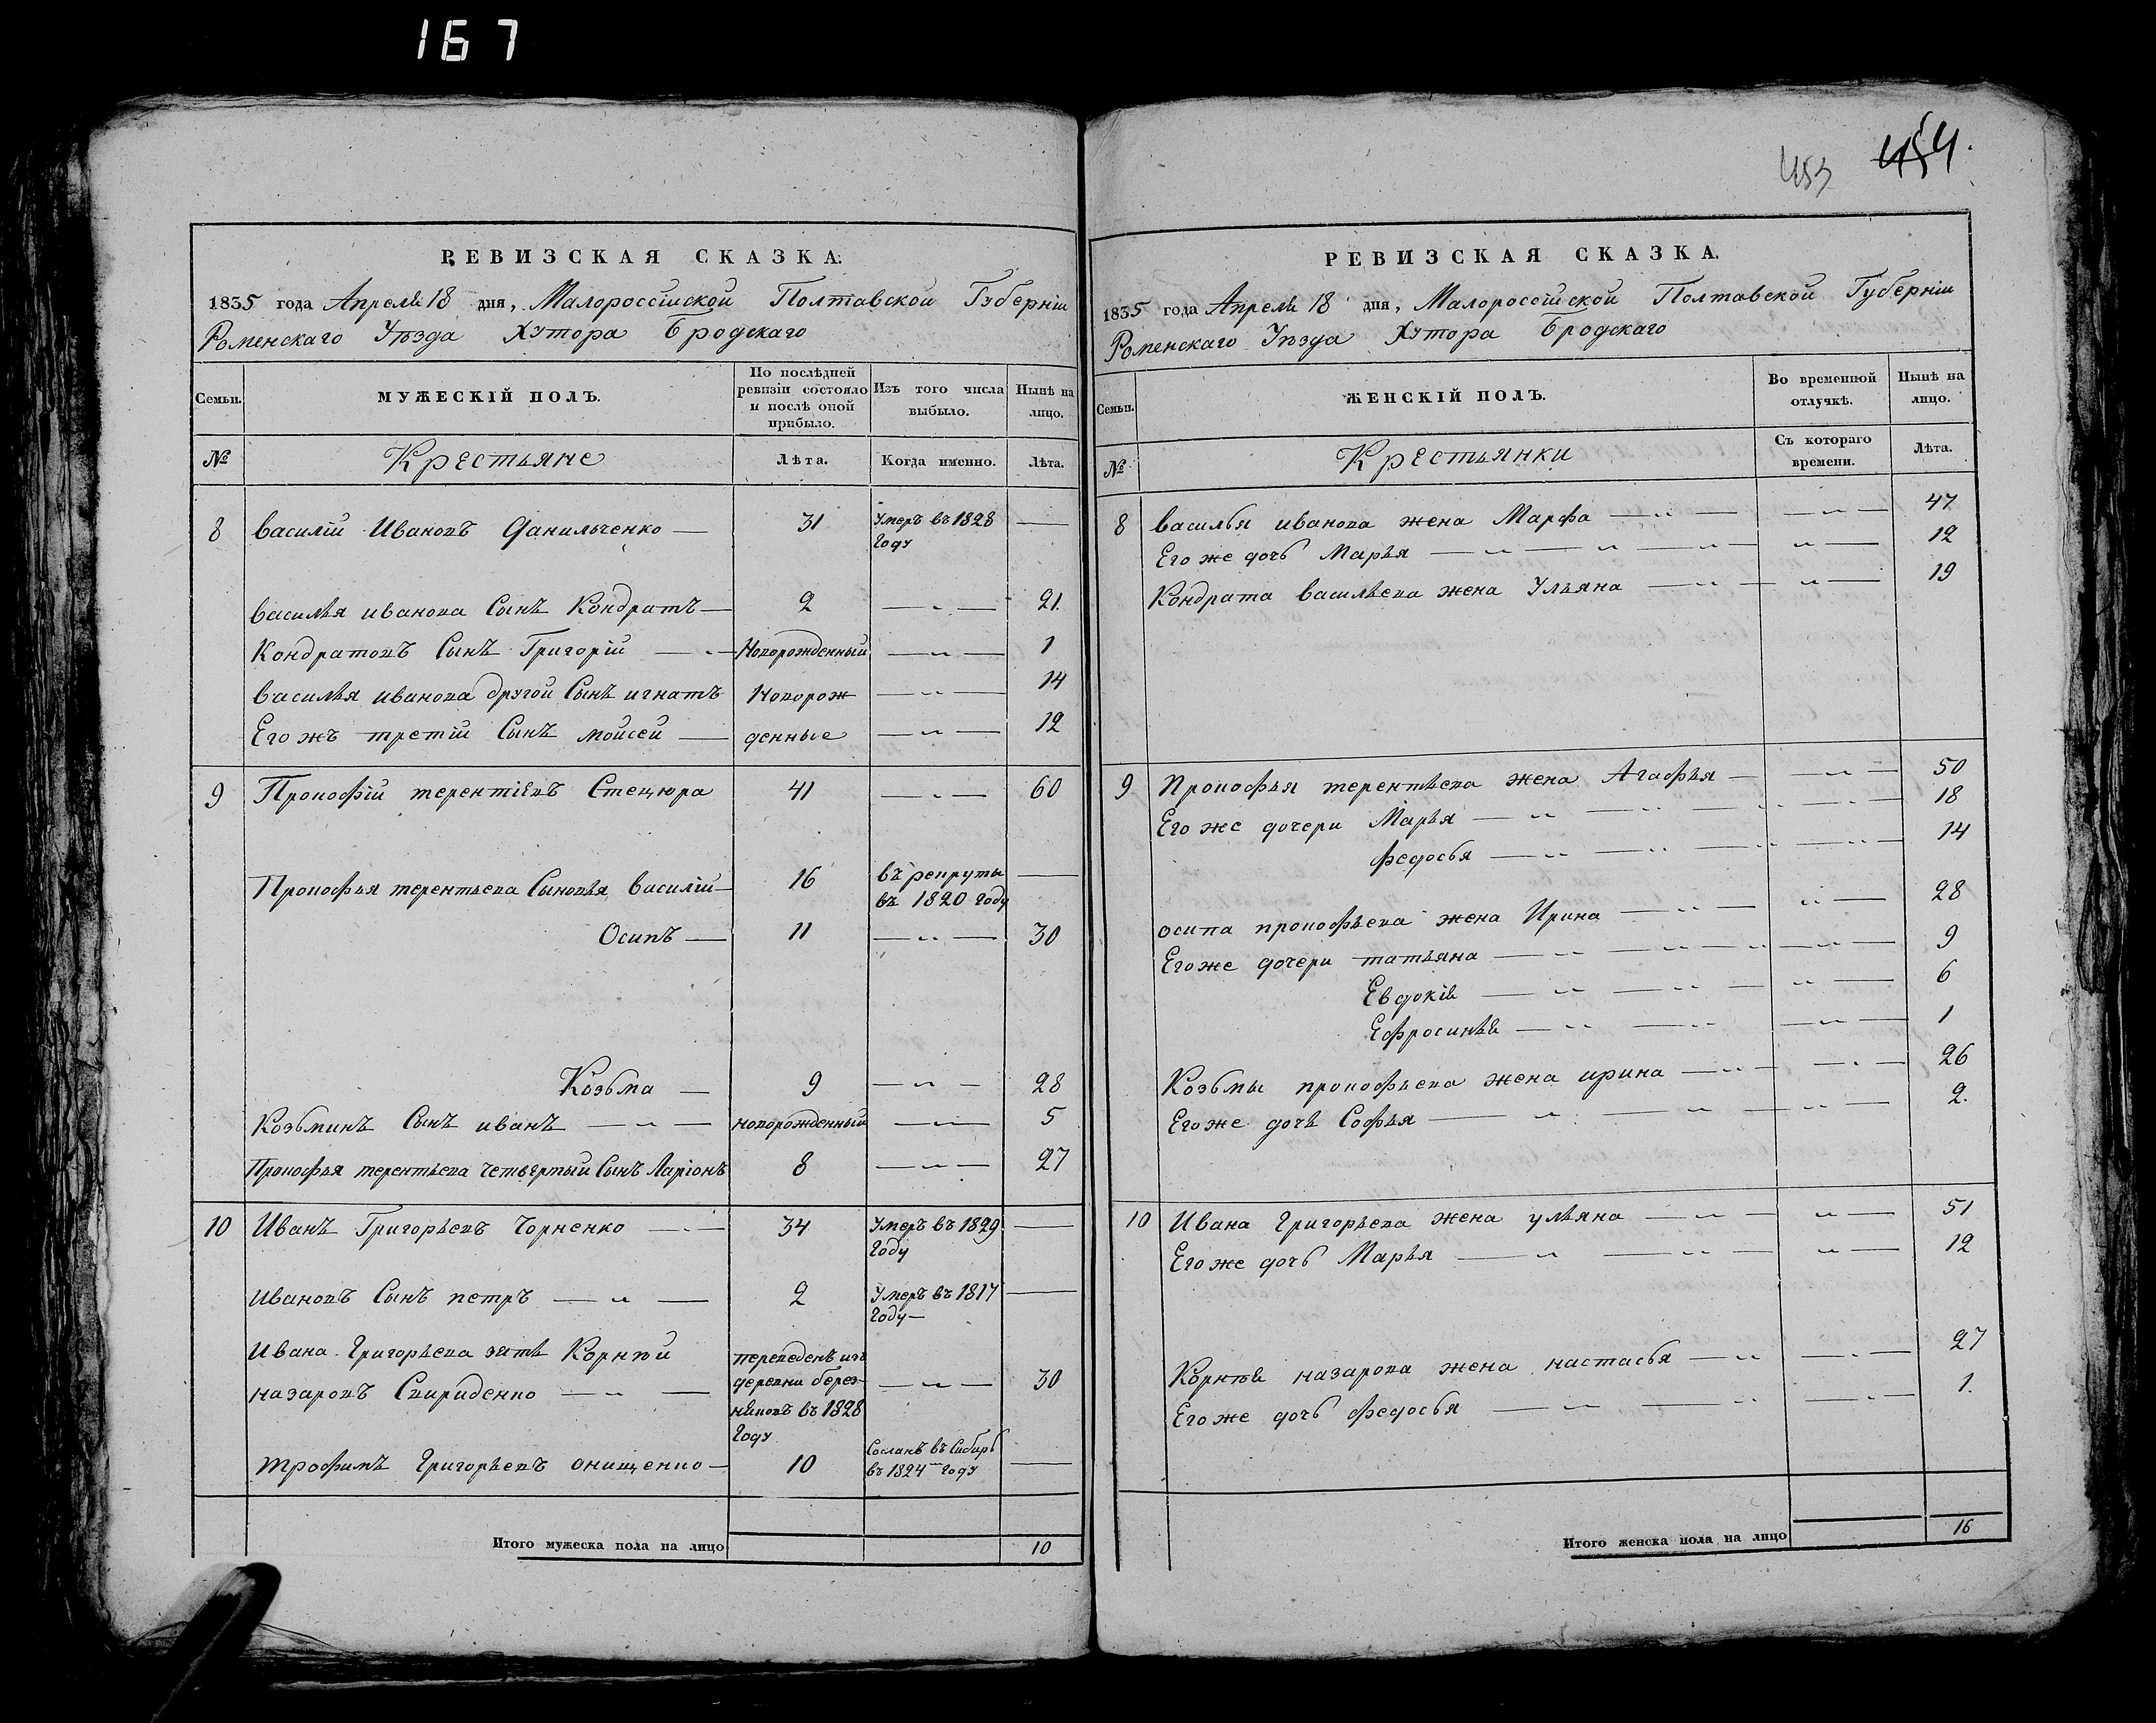 167
453 454.
РЕВИЗСКАЯ СКАЗКА.
1835 года Апреля 18 дня, Малороссійской Полтавской Губерніи
Роменскаго Уѣзда Хутора Бродскаго
Семьи. МУЖЕСКІЙ ПОЛЪ. По послѣдней ревизіи состояло и послѣ оной прибыло. Изъ того числа выбыло. Нынѣ на лицо.
№ Крестьяне Лѣта. Когда именно. Лѣта.
8 Василій Ивановъ Данильченко — 31 Умеръ въ 1828 Году —
Василья Иванова Сынъ Кондратъ — 2 — „ — 21.
Кондратовъ Сынъ Григорій — „ — Новорожденный — „ — 1
Василья Иванова другой Сынъ Игнатъ Новорож — „ — 14
Его жъ третій Сынъ Мойсей — денные — „ — 12
9 Прокофій Терентіевъ Стецюра 41 — „ — 60
Прокофья Терентьева Сыновья Василій — 16 въ рекруты въ 1820 Году —
Осипъ — 11 — „ — 30
Козьма — 9 — „ — 28
Козьминъ Сынъ Иванъ — „ — Новорожденный — „ — 5
Прокофья Терентьева четвертый Сынъ Ларіонъ 8 — „ — 27
10 Иванъ Григорьевъ Чорненко — „ — 34 Умеръ въ 1829 Году —
Ивановъ Сынъ Петръ — „ — 2 Умеръ въ 1817 Году — —
Ивана Григорьева зять Корнѣй
Назаровъ Свириденко — „ — переведенъ изъ деревни Берез-няковъ въ 1828 Году — „ — 30
Трофимъ Григорьевъ Онищенко — 10 Сосланъ въ Сибирь въ 1824 Году —
Итого мужеска пола на лицо 10
РЕВИЗСКАЯ СКАЗКА.
1835 года Апреля 18 дня, Малороссійской Полтавской Губерніи
Роменскаго Уѣзда Хутора Бродскаго
Семьи. ЖЕНСКІЙ ПОЛЪ. Во временной отлучкѣ. Нынѣ на лицо.
№ Крестьянки Съ котораго времени. Лѣта.
8 Василья Иванова жена Марфа — „ — — „ — 47
Его же дочь Марья — „ — „ — „ — „ — 12
Кондрата Васильева жена Ульяна — „ — „ — 19
9 Прокофья Терентьева жена Агафья — — „ — 50
Его же дочери Марья — „ — „ — „ — „ — 18
Федосья — „ — „ — „ — „ — 14
Осипа Прокофьева жена Ирина — „ — „ — 28
Его же дочери Татьяна — „ — „ — „ — „ — 9
Евдокія — „ — „ — „ — 6
Ефросинья — „ — „ — „ — 1
Козьмы Прокофьева жена Ирина — „ — — „ — 26
Его же дочь Софья — „ — „ — „ — 2.
10 Ивана Григорьева жена Ульяна — „ — „ — 51
Его же дочь Марья — „ — „ — „ — 12
Корнѣя Назарова жена Настасья — „ — „ — 27
Его же дочь Федосья — „ — „ — „ — 1.
Итого женска пола на лицо 16